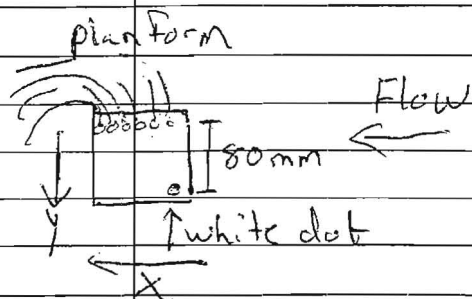 planform
Flow
80mm
y
white dot
X